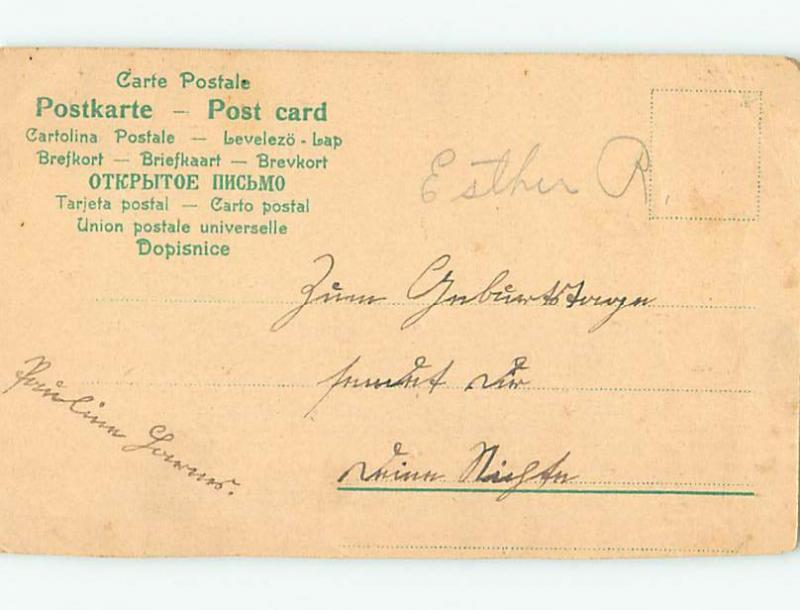 Carte Postale
Postkarte — Post card
Cartolina Postale — Levelezö - Lap
Brefkort — Briefkaart — Brevkort
ОТКРЫТОЕ ПИСЬМО
Tarjeta postal — Carto postal
Union postale universelle
Dopisnice
Esther R.
Zum Geburtstage
sendet Dir
Deine Nichte
Pauline